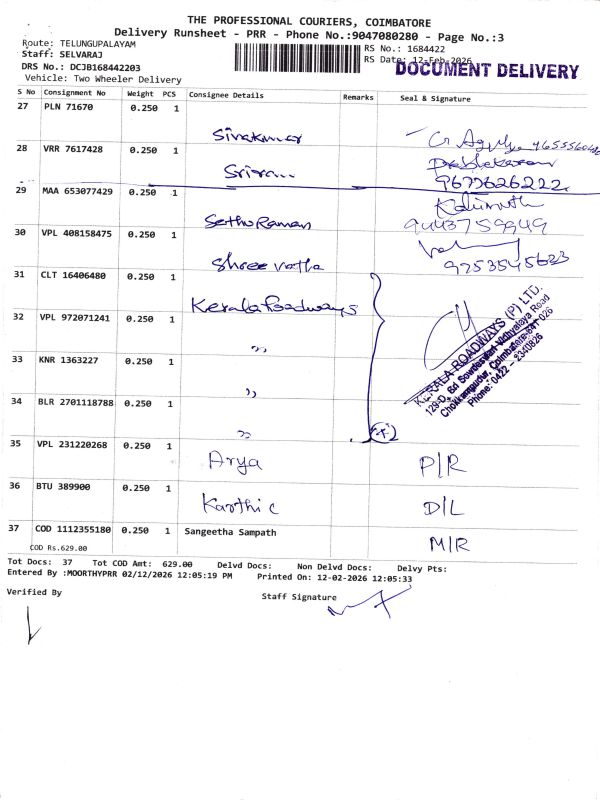 THE PROFESSIONAL COURIERS, COIMBATORE
Delivery Runsheet - PRR - Phone No.:9047080280 - Page No.:3
Route: TELUNGUPALAYAM
Staff: SELVARAJ
DRS No.: DCJB168442203
Vehicle: Two Wheeler Delivery
RS No.: 1684422
RS Date: 12-Feb-2026
DOCUMENT DELIVERY
S No Consignment No Weight PCS Consignee Details Remarks Seal & Signature
27 PLN 71670 0.250 1 Sivakumar
28 VRR 7617428 0.250 1 Sriram
9673626222
29 MAA 653077429 0.250 1 SethuRaman
9443759949
30 VPL 408158475 0.250 1 Shree vatha
9753545623
31 CLT 16406480 0.250 1 Kerala Roadways
32 VPL 972071241 0.250 1 ,,
33 KNR 1363227 0.250 1 ,,
34 BLR 2701118788 0.250 1 ,,
KERALA ROADWAYS (P) LTD.
129-D, Sri Sowdeswari Vidhyalaya Road
Chokkampudur, Coimbatore-641 026
Phone: 0422 - 2340826
35 VPL 231220268 0.250 1 Arya P/R
36 BTU 389900 0.250 1 Karthi c D/L
37 COD 1112355180 0.250 1 Sangeetha Sampath M/R
COD Rs.629.00
Tot Docs: 37 Tot COD Amt: 629.00 Delvd Docs: Non Delvd Docs: Delvy Pts:
Entered By :MOORTHYPRR 02/12/2026 12:05:19 PM Printed On: 12-02-2026 12:05:33
Verified By
Staff Signature